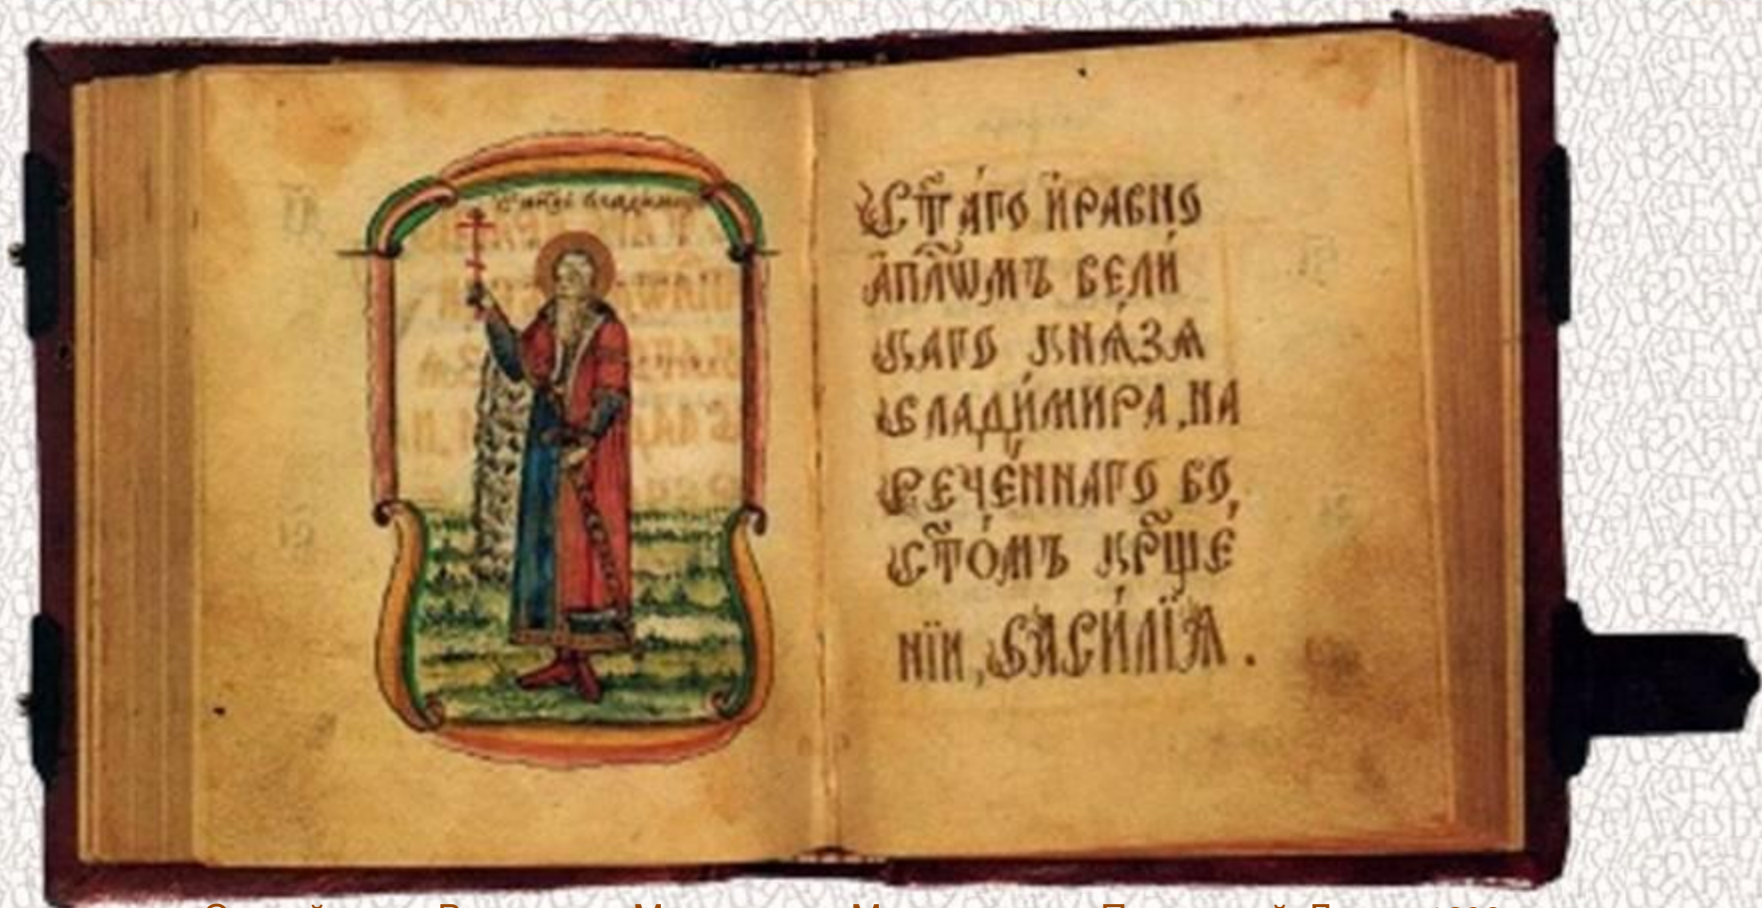 владимир
Ст҃а́го и҆равно
а҆пл҃ѡмъ вели́
каго кнѧ́зѧ
влади́мира, на
рече́ннаго во,
ст҃о́мъ кр҃ще́
нїи, васи́лїѧ.